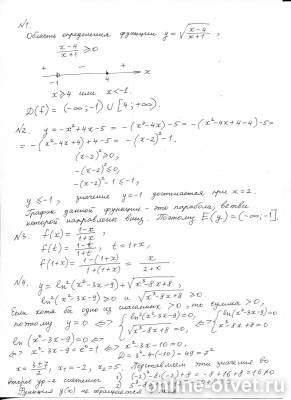 №1.
Область определения функции y = √((x-4)/(x+1)) ;
(x-4)/(x+1) ≥ 0
+ - +
-1 4 x
x ≥ 4 или x < -1.
D(f) = (-∞; -1) ∪ [4; +∞).
№2. y = -x² + 4x - 5 = -(x² - 4x) - 5 = -(x² - 4x + 4 - 4) - 5 =
= -(x² - 4x + 4) + 4 - 5 = -(x-2)² - 1.
(x-2)² ≥ 0,
-(x-2)² ≤ 0,
-(x-2)² - 1 ≤ -1,
y ≤ -1, значение y = -1 достигается при x = 2.
График данной функции - это парабола, ветви
которой направлены вниз. Поэтому E(y) = (-∞; -1].
№3. f(x) = (1-x)/(1+x),
f(t) = (1-t)/(1+t), t = 1+x,
f(1+x) = (1-(1+x))/(1+(1+x)) = x/(2+x)
№4. y = ln²(x²-3x-9) + √(x²-8x+8) ;
ln²(x²-3x-9) ≥ 0 и √(x²-8x+8) ≥ 0.
Если хотя бы одно из слагаемых > 0, то сумма > 0,
поэтому y = 0 ⇔ { ln²(x²-3x-9) = 0, √(x²-8x+8) = 0, ⇔ { ln(x²-3x-9) = 0 x²-8x+8 = 0
ln(x²-3x-9) = 0 ⇔
⇔ x²-3x-9 = e⁰ = 1 ⇔ x²-3x-10 = 0.
D = 3²-4·(-10) = 49 = 7²
x = (3±7)/2, x₁ = -2, x₂ = 5. Подставляем эти значения во
второе ур-е системы 1) (-2)²-8·(-2)+8 =
2) 5²
Функция y(x) не обращается